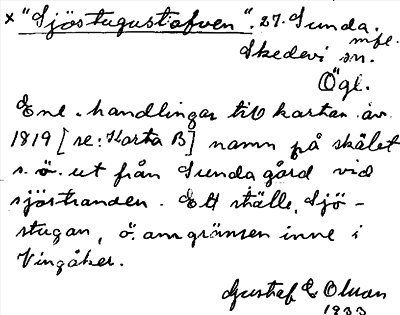 × "Sjöstugustafven". 27. Sunda.
m fl.
Skedevi sn.
Ögl.
Enl. handlingar till kartan av
1819 [se: Karta B] namn på skälet
s. ö. ut från Sunda gård vid
sjöstranden. Ett ställe, Sjö-
stugan, ö. om gränsen inne i
Vingåker.
Gustaf E Olson
1933